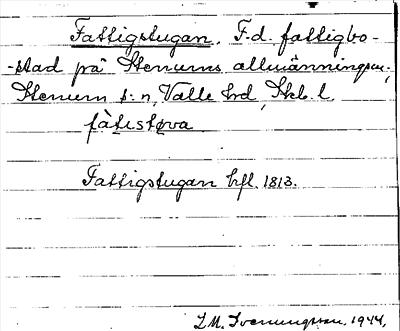 Fattigstugan. F.d. fattigbo-
-stad på Stenums allmänningen,
Stenum s:n, Valle hrd, Skb. l.
fàtistøva
Fattigstugan hfl. 1813.
I. M. Svenungsson. 1944,